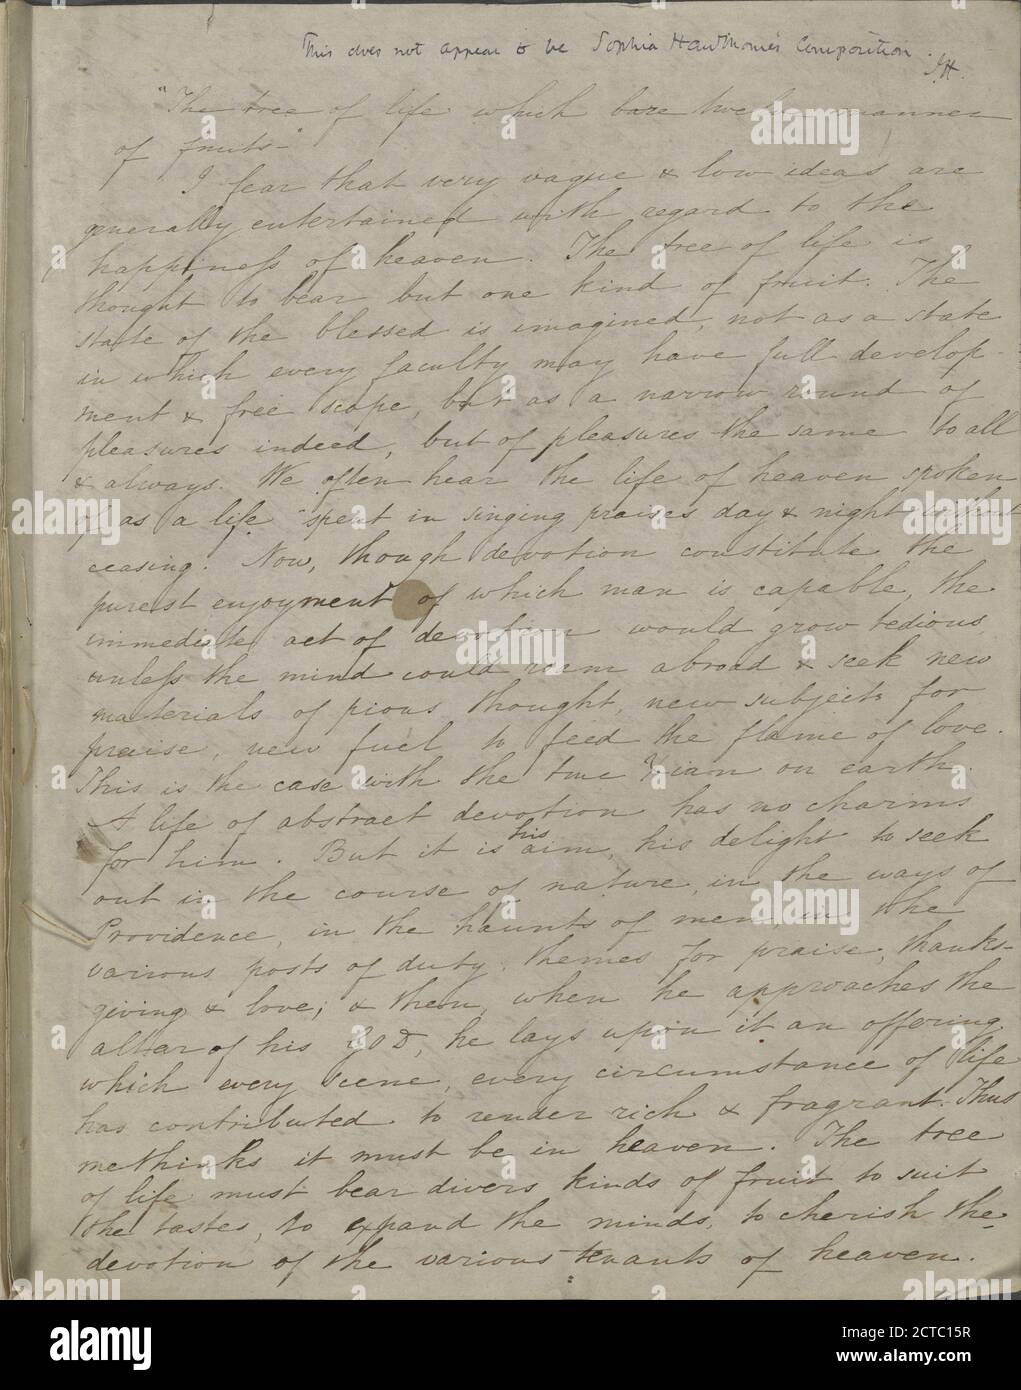 This does not appear to be Sophia Hawthorne's Composition.
J.H.
"The tree of life which bare twelve manner
of fruits"
I fear that very vague & low ideas are
generally entertained with regard to the
happiness of heaven. The tree of life is
thought to bear but one kind of fruit. The
state of the blessed is imagined, not as a state
in which every faculty may have full develop-
ment & free scope, but as a narrow round of
pleasures indeed, but of pleasures the same to all
& always. We often hear the life of heaven spoken
of as a life "spent in singing praises day & night without
ceasing." Now, though devotion constitute the
purest enjoyment of which man is capable, the
immediate act of devotion would grow tedious
unless the mind could roam abroad & seek new
materials of pious thought, new subjects for
praise, new fuel to feed the flame of love.
This is the case with the true Xian on earth.
A life of abstract devotion has no charms
for him. But it is his aim, his delight to seek
out in the course of nature, in the ways of
Providence, in the haunts of men, in the
various posts of duty, themes for praise, thanks-
giving & love; & then, when he approaches the
altar of his God, he lays upon it an offering
which every scene, every circumstance of life
has contributed to render rich & fragrant. Thus
methinks it must be in heaven. The tree
of life must bear divers kinds of fruit to suit
the tastes, to expand the minds, to cherish the
devotion of the various tenants of heaven.
alamy
a
Image ID: 2CTC15R
www.alamy.com